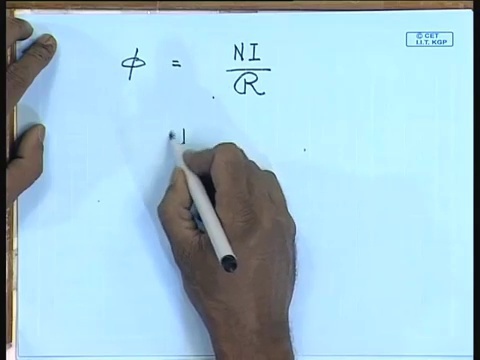 © CET
I.I.T. KGP
φ = NI / R